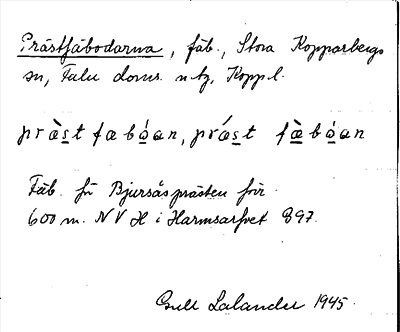 Prästfäbodarna, fäb., Stora Kopparbergs
sn, Falu doms. utg, Koppl.
præ̀st fæbo̊́an, prǽst fæ̀bo̊̀an
Fäb. för Bjursåsprästen förr.
600 m. NV H i Harmsarfvet 897.
Gull Lalander 1945.